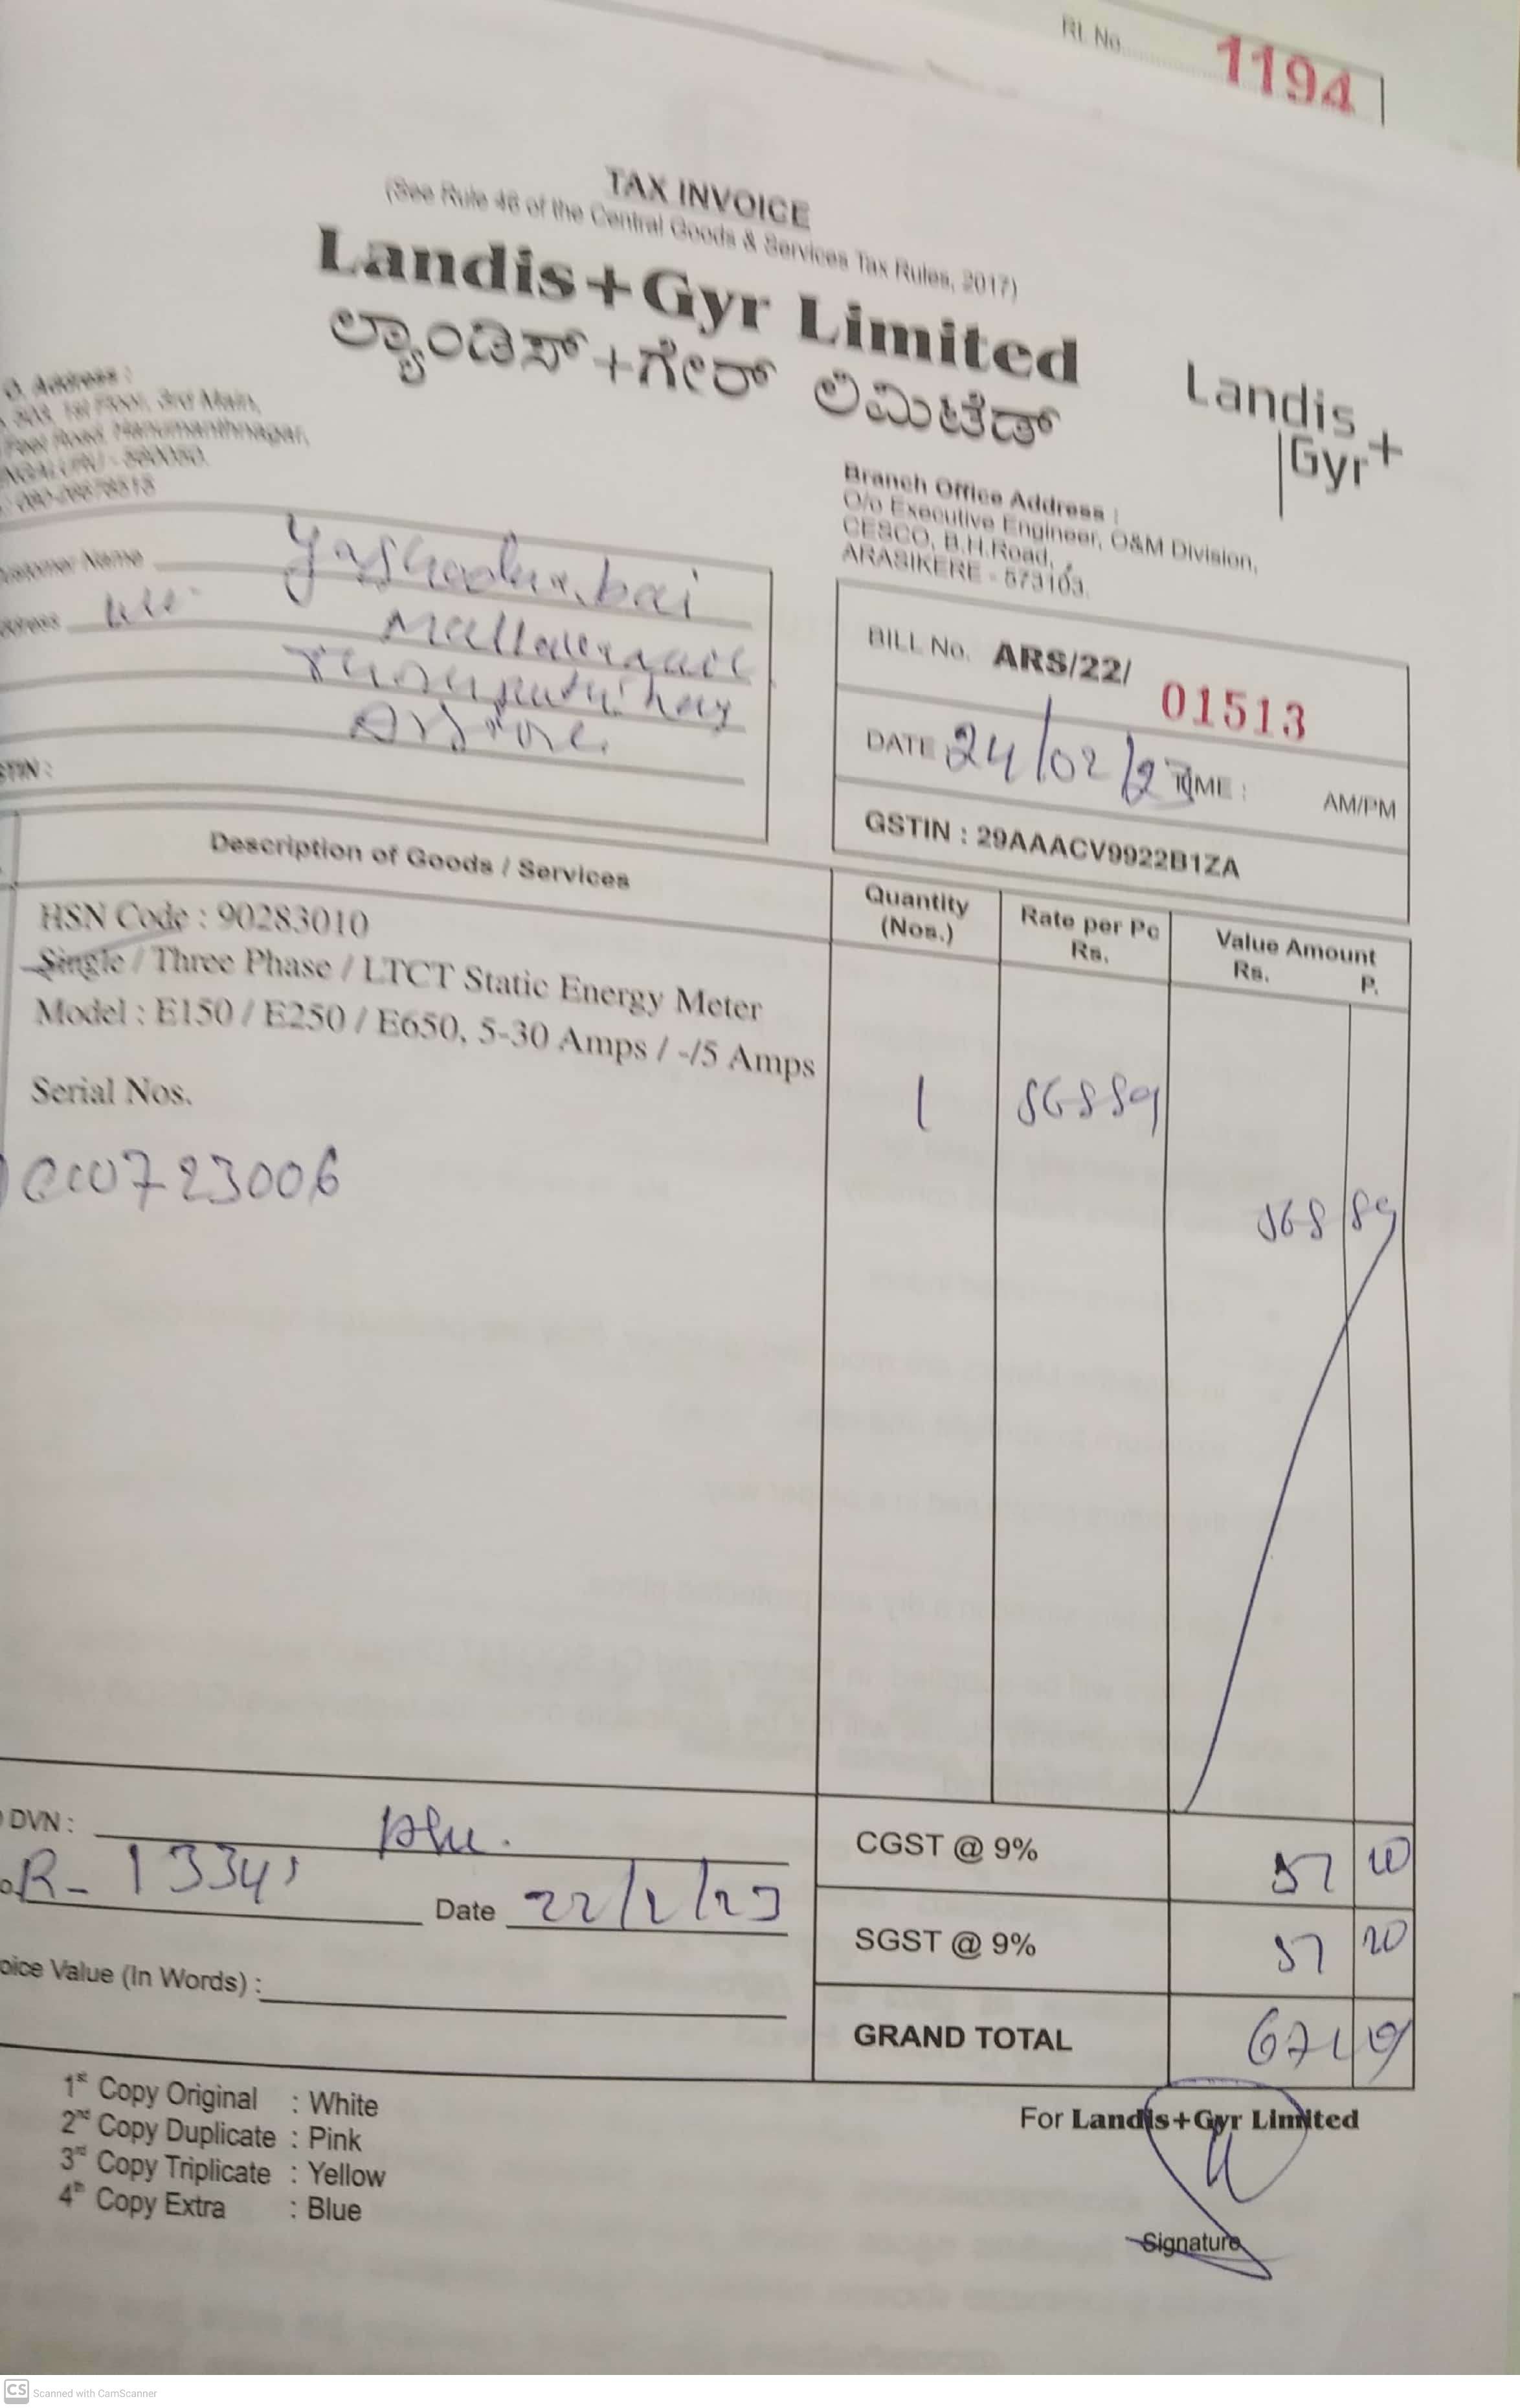 Rt. No. 1194
TAX INVOICE
(See Rule 46 of the Central Goods & Services Tax Rules, 2017)
Landis+Gyr Limited
ಲ್ಯಾಂಡಿಸ್+ಗೇರ್ ಲಿಮಿಟೆಡ್
Landis
Gyr+
Address :
303, 1st Floor, 3rd Main,
Road, Hanumanthnagar,
- 560050.
Branch Office Address :
O/o Executive Engineer, O&M Division,
CESCO, B.H.Road,
ARASIKERE - 573103.
Name
BILL No. ARS/22/ 01513
DATE 24/02/23 TIME : AM/PM
GSTIN : 29AAACV9922B1ZA
TIN :
Description of Goods / Services
Quantity
(Nos.)
Rate per Pc
Rs.
Value Amount
Rs. P.
HSN Code : 90283010
Single / Three Phase / LTCT Static Energy Meter
Model : E150 / E250 / E650, 5-30 Amps / -/5 Amps
Serial Nos.
1
568 89
0723006
DVN :
R-
Date 22/2/23
oice Value (In Words) :
CGST @ 9% 51 20
SGST @ 9% 51 20
GRAND TOTAL
1st Copy Original : White
2nd Copy Duplicate : Pink
3rd Copy Triplicate : Yellow
4th Copy Extra : Blue
For Landis+Gyr Limited
Signature
CS Scanned with CamScanner